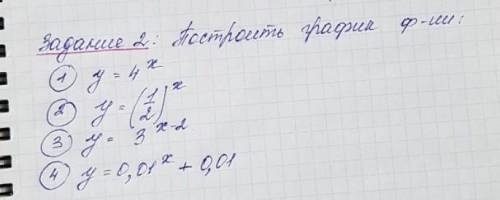 Задание 2: Построить график ф-ии:
① y = 4^x
② y = (1/2)^x
③ y = 3^x-2
④ y = 0,01^x + 0,01